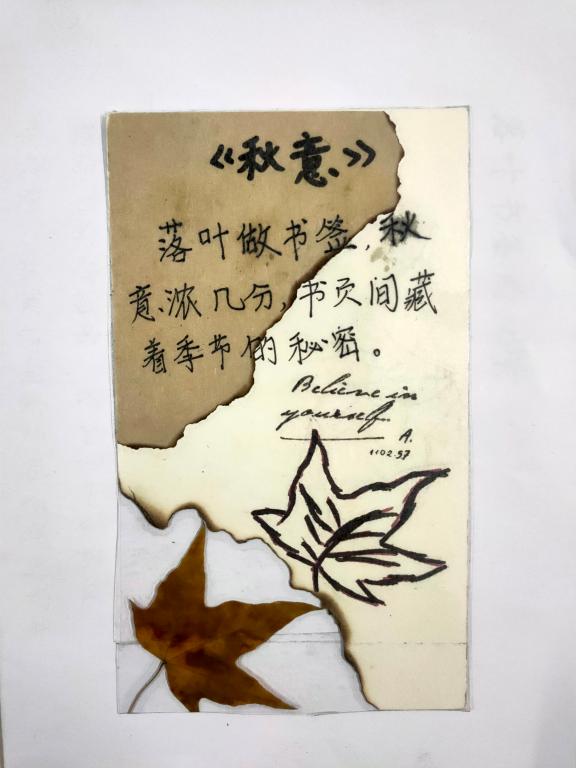 《秋意》
落叶做书签,秋
意浓几分,书页间藏
着季节的秘密。
Believe in
yourself.
A.
1102.97